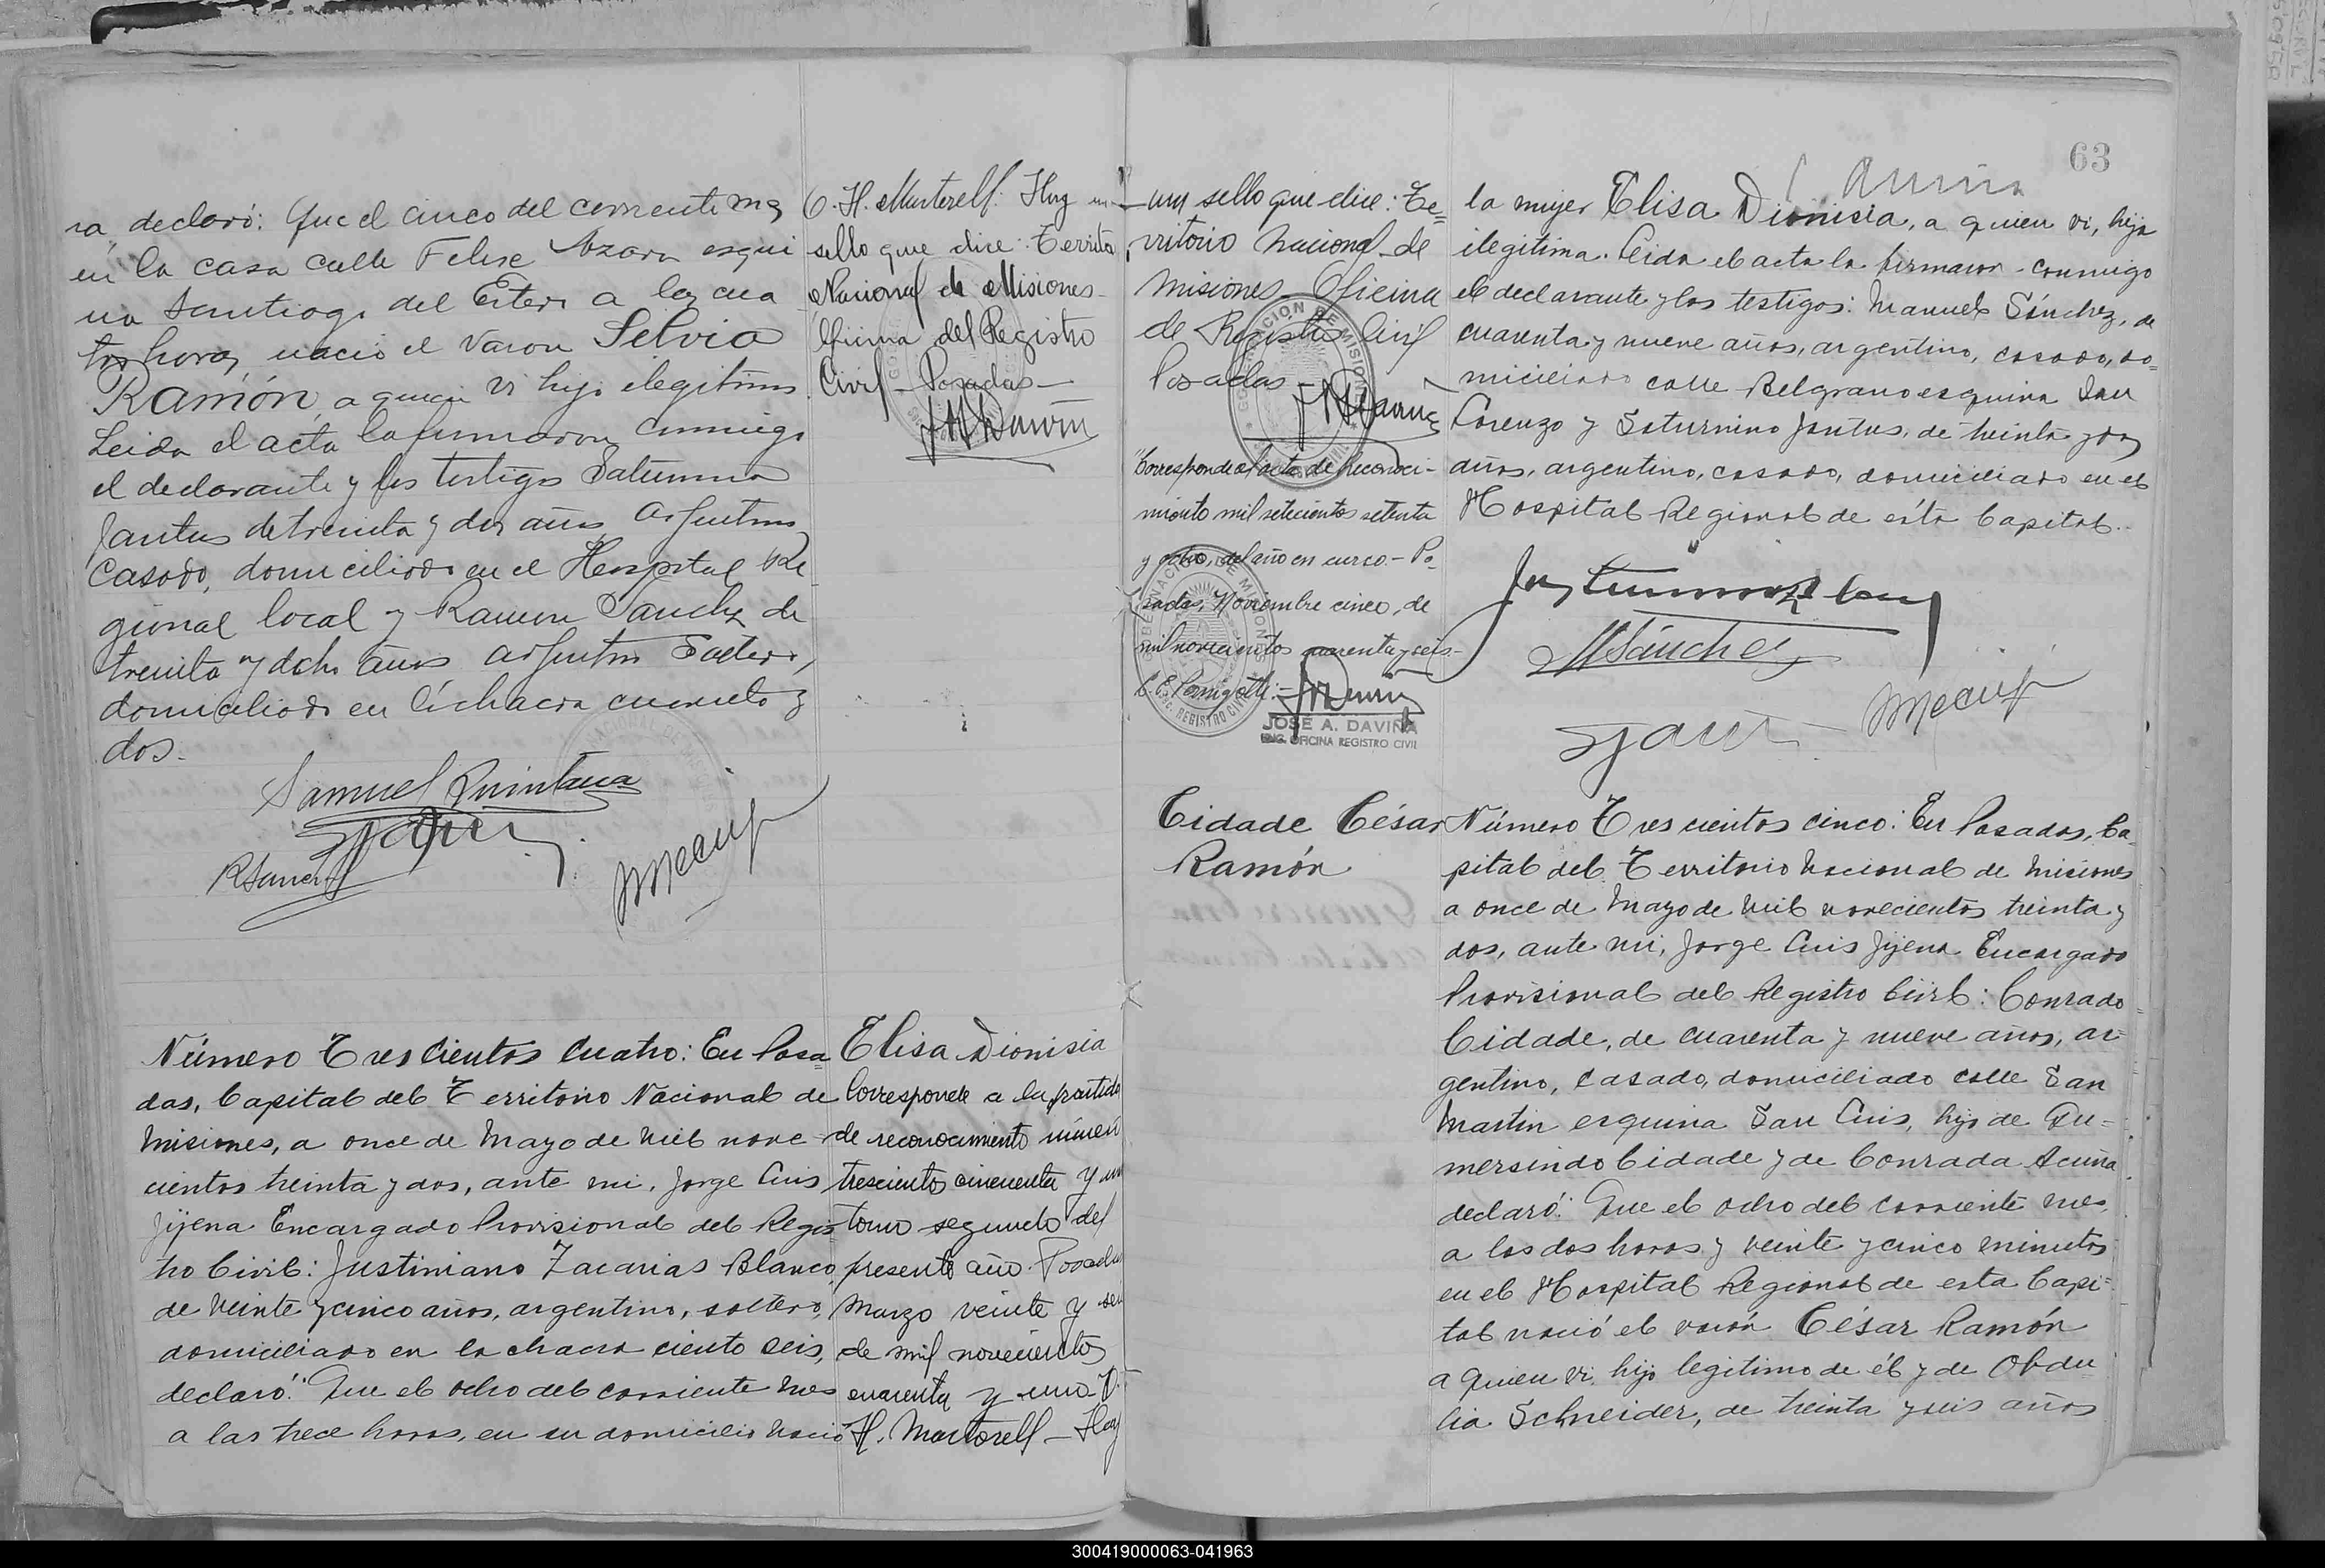 ra declaró: Que el cinco del corriente mes
en la casa calle Felix Azara esqui
na Santiago del Estero a las cua
tro horas nació el varon Selvio
Ramón, a quien vi hijo ilegitimo
Leida el acta la firmaron conmigo
el declarante y los testigos Saturnino
Jantus de treinta y dos años argentino
casado, domiciliado en el Hospital Re
gional local y Ramon Sanchez de
treinta y ocho años argentino Soltero,
domiciliado en la chacra cuarenta y
dos.
Samuel Quintana
RSanch
O. H. Martorell. Hay un
sello que dice: Territo
Nacional de Misiones
Oficina del Registro
Civil - Posadas -
Número Trescientos cuatro: En Posa
das, Capital del Territorio Nacional de
Misiones, a once de Mayo de mil nove
cientos treinta y dos, ante mi, Jorge Luis
Jijena Encargado Provisional del Regis
tro Civil: Justiniano Zacarias Blanco,
de veinte y cinco años, argentino, soltero,
domiciliado en la chacra ciento seis,
declaró: Que el ocho del corriente mes
a las trece horas, en su domicilio nació
Elisa Dionisia
Corresponde a la partida
de reconocimiento número
trescientos cincuenta y un
tomo segundo del
presente año. Posadas
Marzo veinte y sei
de mil novecientos
cuarenta y uno
H. Martorell - Hay
63
un sello que dice: Te=
rritorio Nacional de
Misiones - Oficina
de Registro Civil
Posadas -
Corresponde al acta de reconoci-
miento mil setecientos setenta
y ocho, del año en curso. - Po
sadas, Noviembre cinco, de
mil novecientos cuarenta y seis -
JOSÉ A. DAVIÑA
ENC. OFICINA REGISTRO CIVIL
la mujer Elisa Dionisia, a quien vi, hija
ilegitima. Leida el acta la firmaron conmigo
el declarante y los testigos: Manuel Sánchez, de
cuarenta y nueve años, argentino, casado, do=
miciliado calle Belgrano esquina San
Lorenzo y Saturnino Jantus, de treinta y dos
años, argentino, casado, domiciliado en el
Hospital Regional de ésta Capital.-
MSánchez
Cidade César
Ramón
Número Trescientos cinco: En Posadas, Ca
pital del Territorio Nacional de Misiones
a once de Mayo de mil novecientos treinta y
dos, ante mi, Jorge Luis Jijena Encargado
Provisional del Registro Civil: Conrado
Cidade, de cuarenta y nueve años, ar=
gentino, casado, domiciliado calle San
Martin esquina San Luis, hijo de Gu=
mersindo Cidade y de Conrada Acuña
declaró: Que el ocho del corriente mes,
a las dos horas y veinte y cinco minutos
en el Hospital Regional de esta Capi=
tal nació el varón César Ramón
a quien vi, hijo legitimo de él y de Obdu
lia Schneider, de treinta y seis años
300419000063-041963